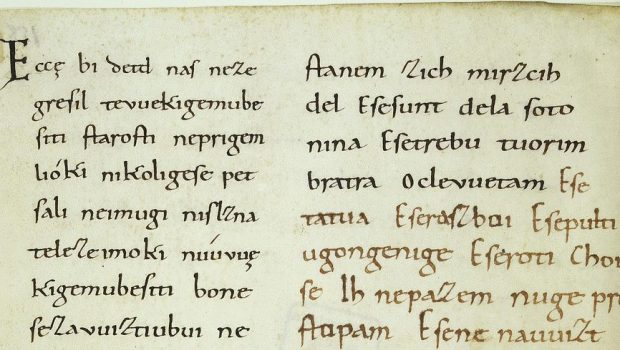 Eccę bi detd naſ neze
greſil tevuekigemube
ſiti ſtaroſti neprigem
lióki nikoligeſe pet
ſali neimugi niſlzna
teleze imoki núúvvę
kigemubeſiti bone
ſezavuiztiubui ne
ſtanem zich mirzcih
del Eſeſunt dela ſoto
nina Eſetrebu tuorim
bratra Oclevuetam Eſe
tatua Eſerazboi Eſepulti
ugongenige Eſeroti Choi
ſe Ih nepazem nuge pre
ſtopam Eſene nauuizt